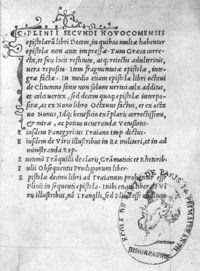 C. PLINII SECUNDI NOVOCOMENSES
epistolarū libri Decem, in quibus multæ habentur
epistolæ non ante impressæ. Tum Græca corre-
cta, et suis locis restituta, atq; reiectis adulterinis,
uera reposita. Item fragmentatæ epistolæ, inte-
græ factæ. In medio etiam epistolæ libri octaui
de Clitumno fonte non solum uertici calx additus, et
calci uertex, sed decem quoq; epistolæ interpo-
sitæ, ac ex Nono libro Octauus factus, et ex octa
uo Nonus, Idq; beneficio exēplaris correctissimi,
et miræ, ac potius uenerandæ Vetustatis.
Eiusdem Panegyricus Traiano Imp. dictus.
Eiusdem de Viris illustribus in Re militari, et in ad
ministranda Rep.
Suetonii Tráquilli de Claris Grámaticis et Rhetorib.
Iulii Obsequentis Prodigiorum liber.
Epistolæ decimi libri ad Traianum
Plinii in sequenti epistola.
illustribus, nō Tranqlli, sed Plinii esse